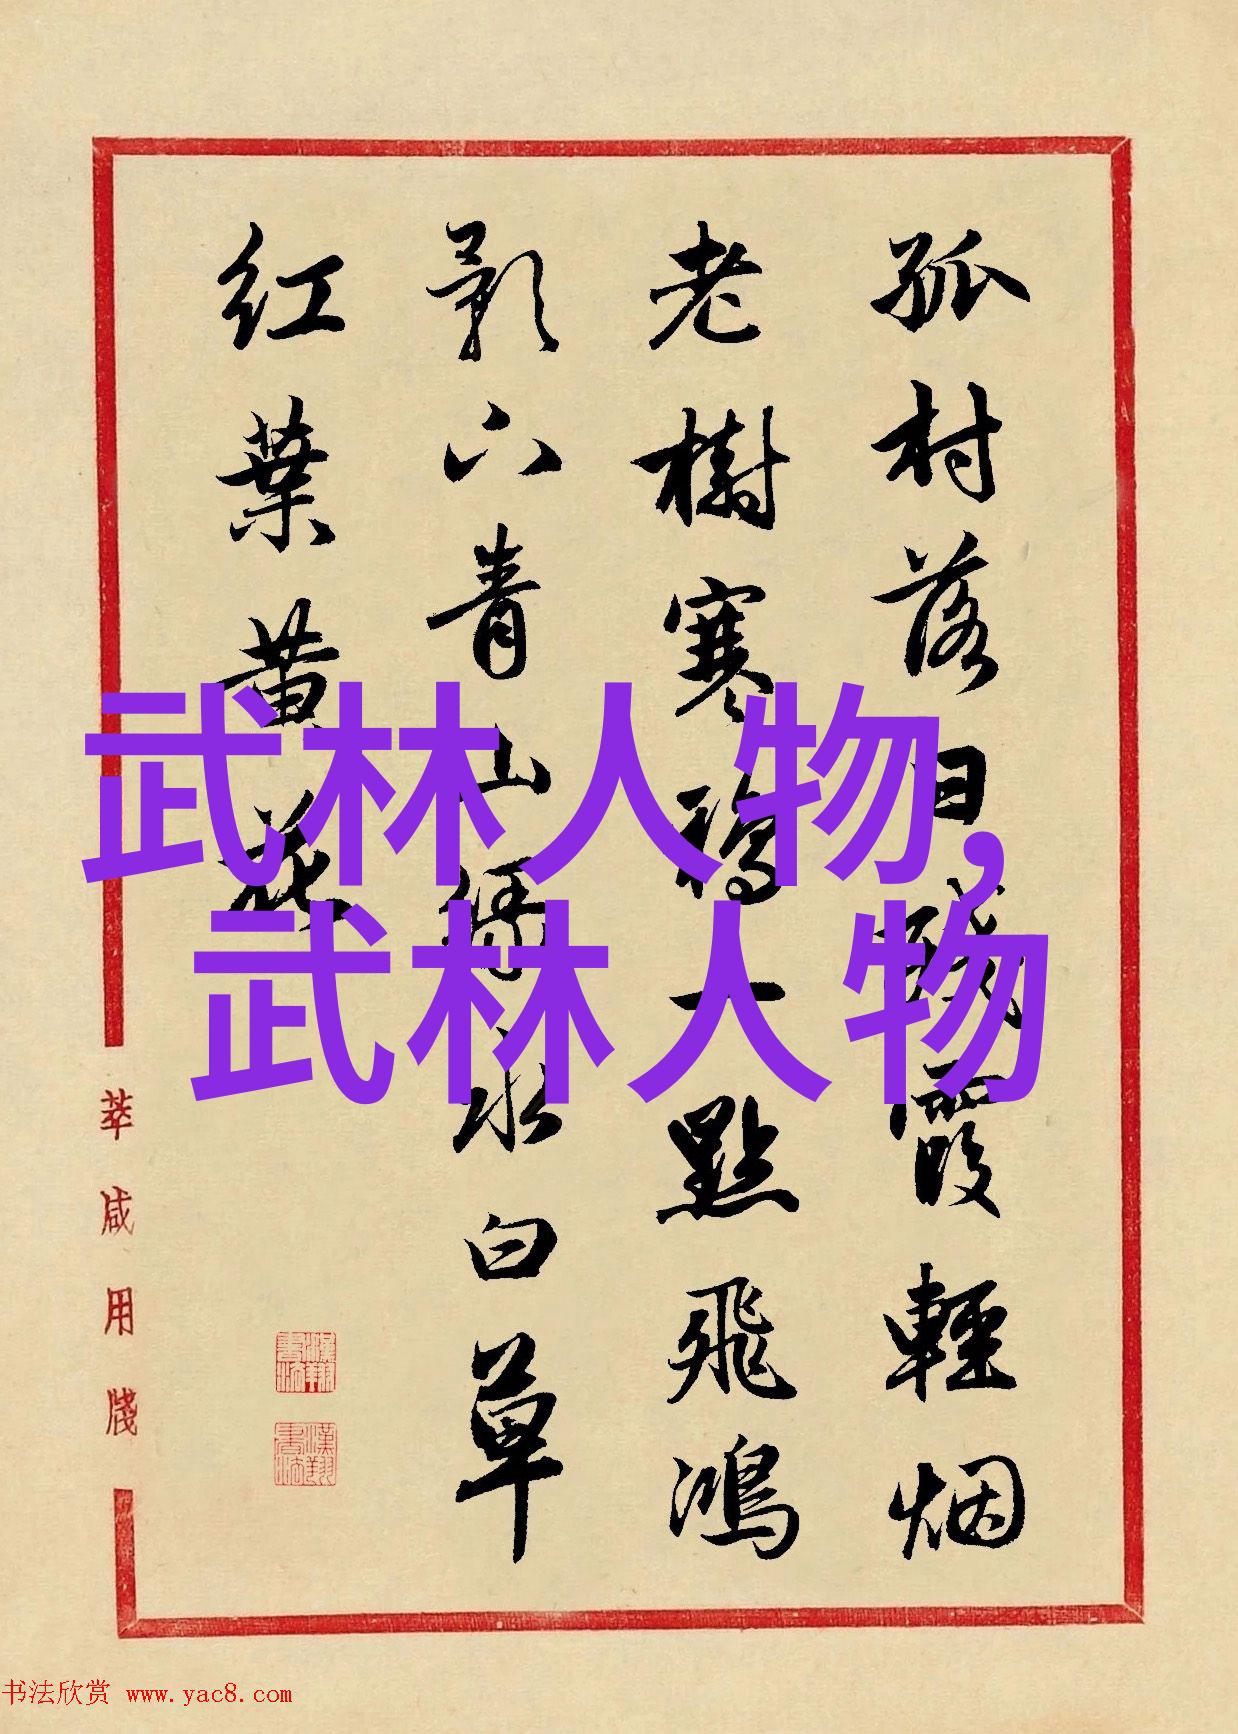 孤村落日殘霞輕烟
老樹寒鴉一點飛鴻
影下青山綠水白草
紅葉黃花
武林人物,
武林人物
萃咸用牋
漢翔書法
漢翔書法
书法欣赏 www.yac8.com